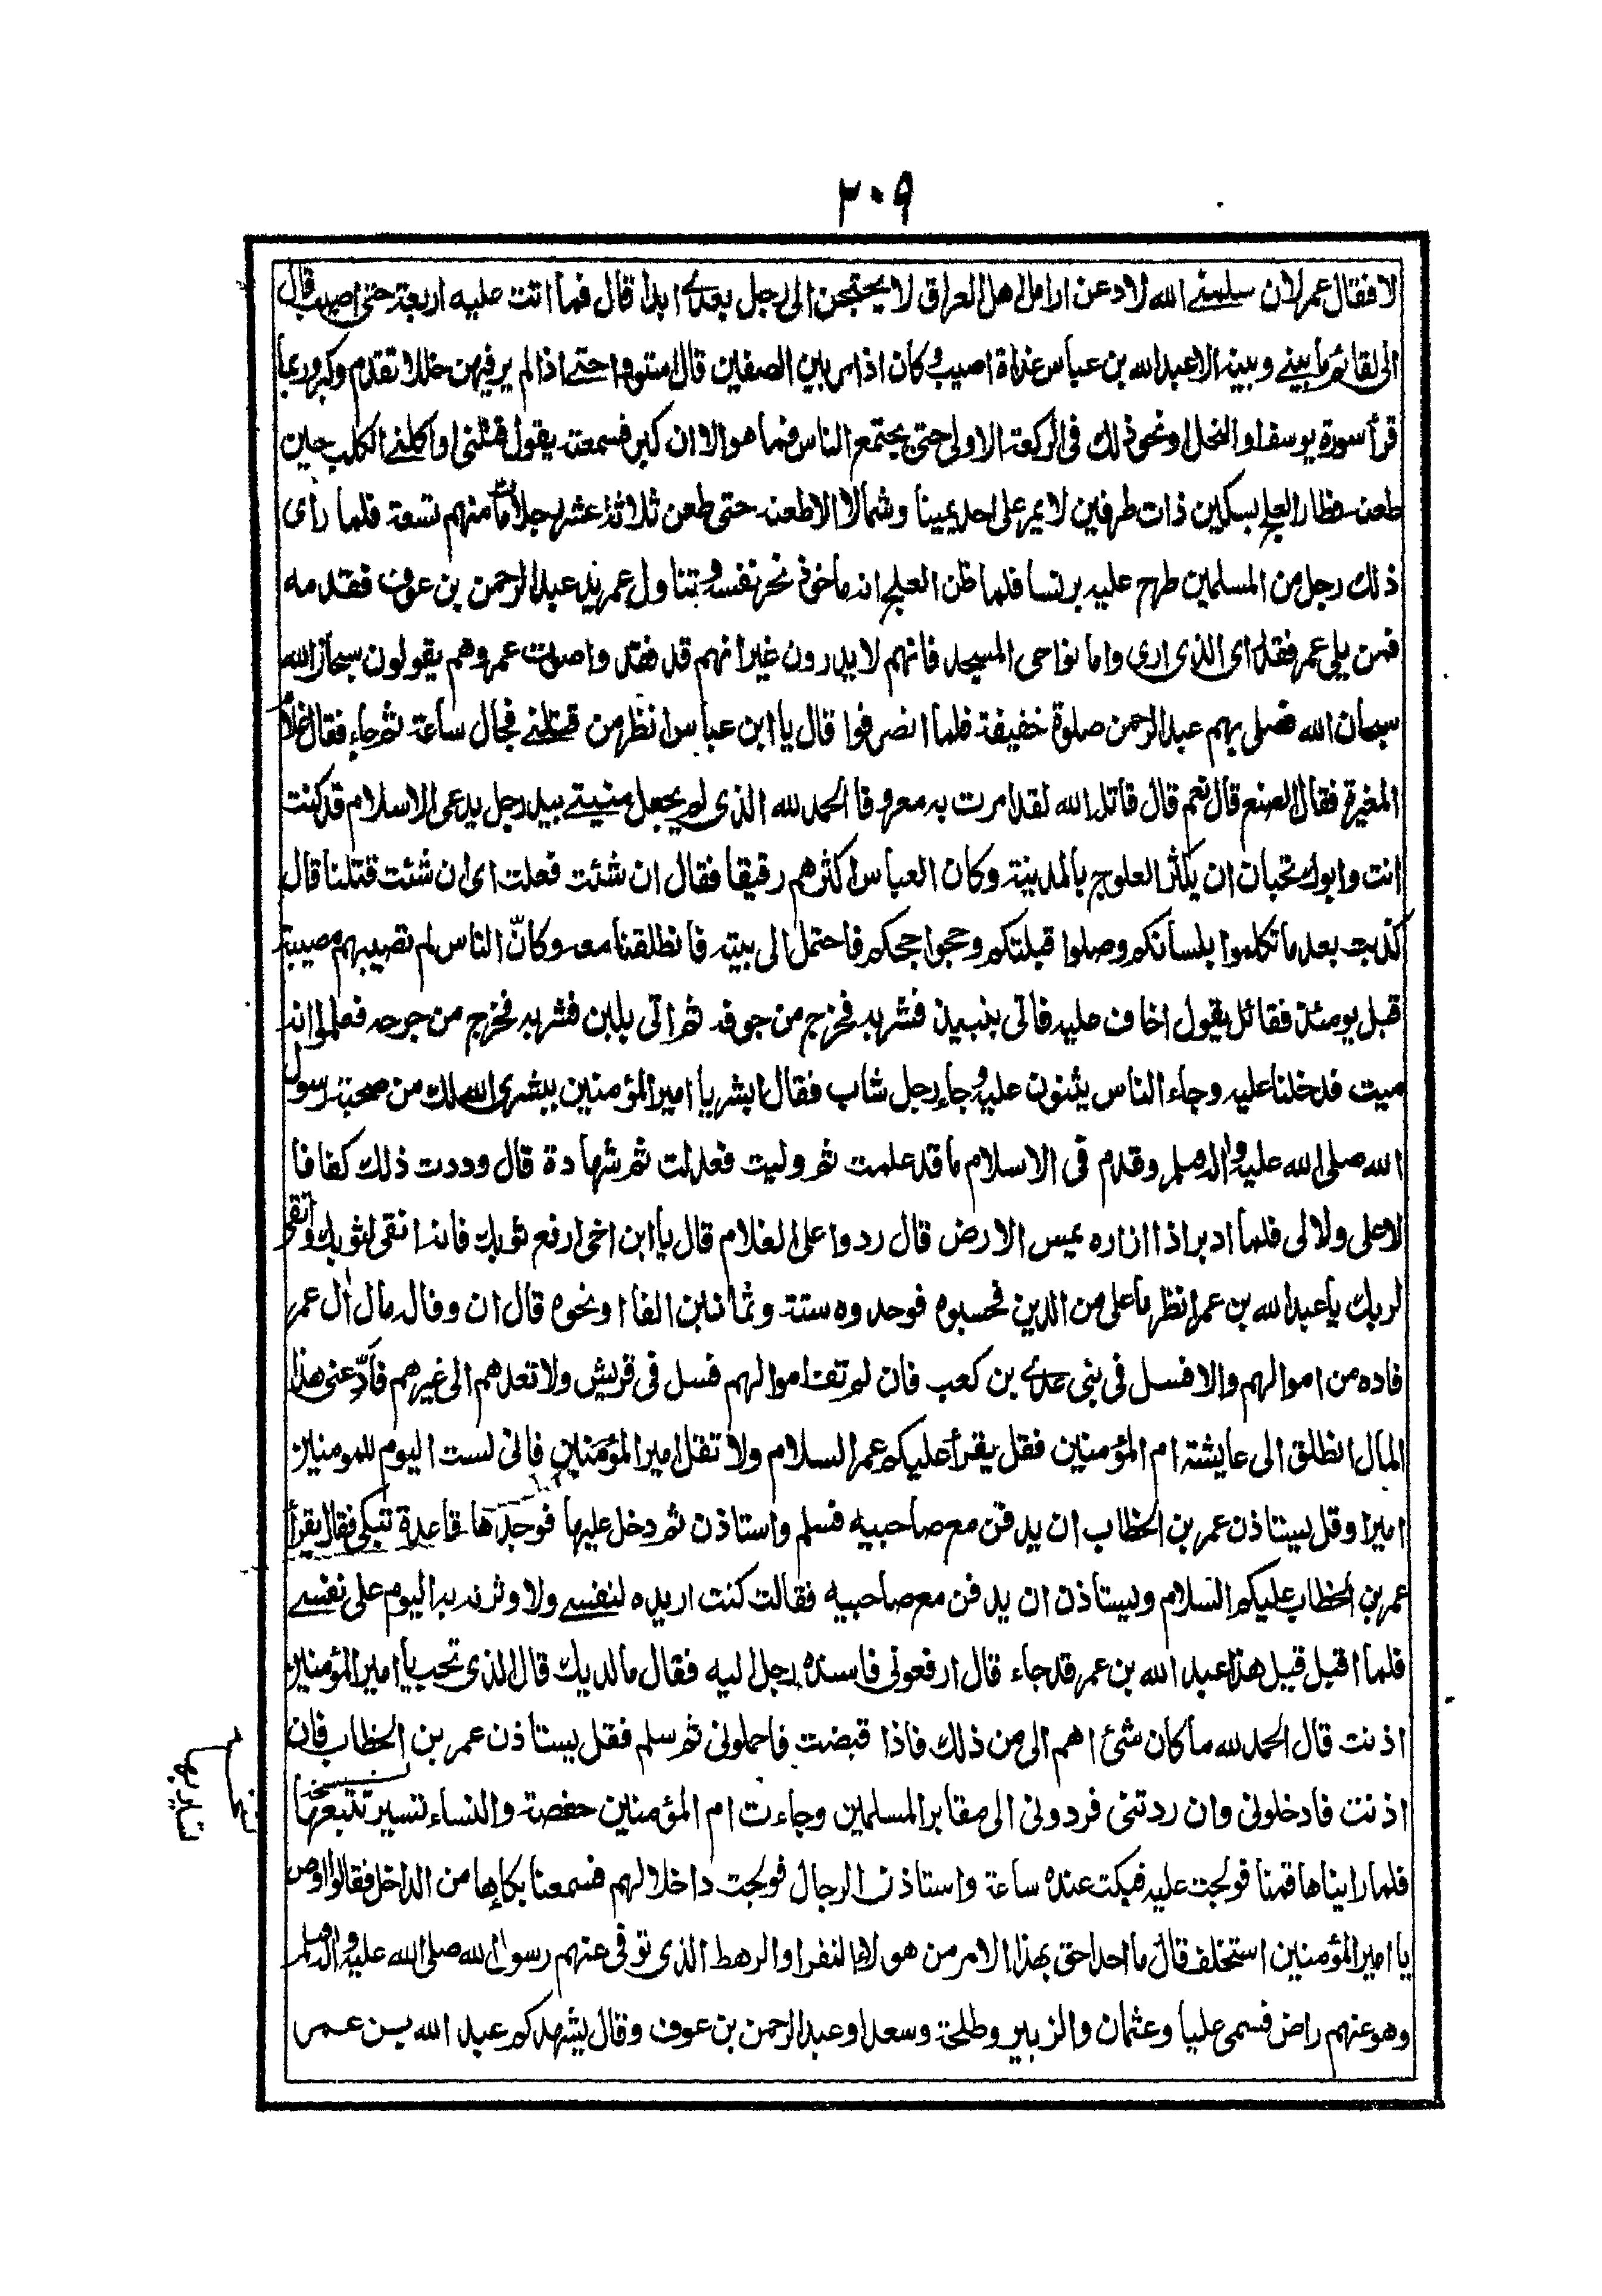 ٣٠٩
لا فقال عمر لان سلمنے الله لادعن ارامل اهل العراق لا يحتجن الى رجل بعدے ابدا قال فما اتت عليه اربعة حتى اصيب قال
انى لقائم ما بينے وبينه الا عبدالله بن عباس غداة اصيب وكان اذا مر بين الصفين قال استووا حتے اذا لم ير فيهن خللا تقدم وكبر وربما
قرأ سورة يوسف او النحل او نحو ذلك فى الركعة الاولى حتى يجتمع الناس فما هو الا ان كبر فسمعته يقول قتلنى او اكلنے الكلب حين
طعنه فطار العلج بسكين ذات طرفين لا يمر على احد يمينا وشمالا الا طعنه حتى طعن ثلاثة عشر رجلا مات منهم تسعة فلما رأى
ذلك رجل من المسلمين طرح عليه برنسا فلما ظن العلج انه ماخوذ نحر نفسه وتناول عمر يد عبدالرحمن بن عوف فقدمه
فمن يلى عمر فقد اى الذى ارى واما نواحى المسجد فانهم لا يدرون غير انهم قد فقدوا صوت عمر وهم يقولون سبحان الله
سبحان الله فصلى بهم عبدالرحمن صلوة خفيفة فلما انصرفوا قال يا ابن عباس انظر من قتلنے فجال ساعة ثم جاء فقال غلام
المغيرة فقال الصنع قال نعم قال قاتله الله لقد امرت به معروفا الحمد لله الذى لم يجعل منيتے بيد رجل يدعى الاسلام قد كنت
انت وابوك تحبان ان يكثر العلوج بالمدينة وكان العباس اكثرهم رقيقا فقال ان شئت فعلت اى ان شئت قتلنا قال
كذبت بعد ما تكلموا بلسانكم وصلوا قبلتكم وحجوا حجكم فاحتمل الى بيته فانطلقنا معه وكانّ الناس لم تصيبهم مصيبة
قبل يومئذ فقائل يقول اخاف عليه فاتى بنبيذ فشربه فخرج من جوفه ثم اتى بلبن فشربه فخرج من جرحه فعلموا انه
ميت فدخلنا عليه وجاء الناس يثنون عليه وجاء رجل شاب فقال ابشر يا امير المؤمنين ببشرى الله لك من صحبة رسول
الله صلى الله عليه واله وسلم وقدم فى الاسلام ما قد علمت ثم وليت فعدلت ثم شهادة قال وددت ذلك كفافا
لا على ولا لى فلما ادبر اذا ازاره يمس الارض قال ردوا على الغلام قال يا ابن اخى ارفع ثوبك فانه انقى لثوبك واتقى
لربك يا عبدالله بن عمر انظر ما على من الدين فحسبوه فوجدوه ستة وثمانين الفا او نحوه قال ان وفا له مال ال عمر
فاده من اموالهم والا فسل فى بنى عدے بن كعب فان لم تف اموالهم فسل فى قريش ولا تعدهم الى غيرهم فأدّ عنى هذا
المال انطلق الى عايشة ام المؤمنين فقل يقرأ عليكم عمر السلام ولا تقل امير المؤمنين فانى لست اليوم للمومنين
اميرا وقل يستاذن عمر بن الخطاب ان يدفن مع صاحبيه فسلم واستاذن ثم دخل عليها فوجدها قاعدة تبكى فقال يقرأ
عمر بن الخطاب عليكم السلام ويستاذن ان يدفن مع صاحبيه فقالت كنت اريده لنفسے ولاوثرنه به اليوم على نفسے
فلما اقبل قيل هذا عبد الله بن عمر قد جاء قال ارفعونى فاسنده رجل اليه فقال ما لديك قال الذى تحب يا امير المؤمنين
اذنت قال الحمد لله ما كان شئ اهم الى من ذلك فاذا قبضت فاحملونى ثم سلم فقل يستاذن عمر بن الخطاب فان
اذنت فادخلونى وان ردتنى فردونى الى مقابر المسلمين وجاءت ام المؤمنين حفصة والنساء تسير تتبعها
فلما راينا ها قمنا فولجت عليه فبكت عنده ساعة واستاذن الرجال فولجت داخلا لهم فسمعنا بكاءها من الداخل فقالوا اوص
يا امير المؤمنين استخلف قال ما احد احق بهذا الامر من هولاء النفر او الرهط الذى توفى عنهم رسول الله صلى الله عليه واله وسلم
وهو عنهم راض فسمى عليا وعثمان والزبير وطلحة وسعدا وعبدالرحمن بن عوف وقال يشهدكم عبد الله بن عمر